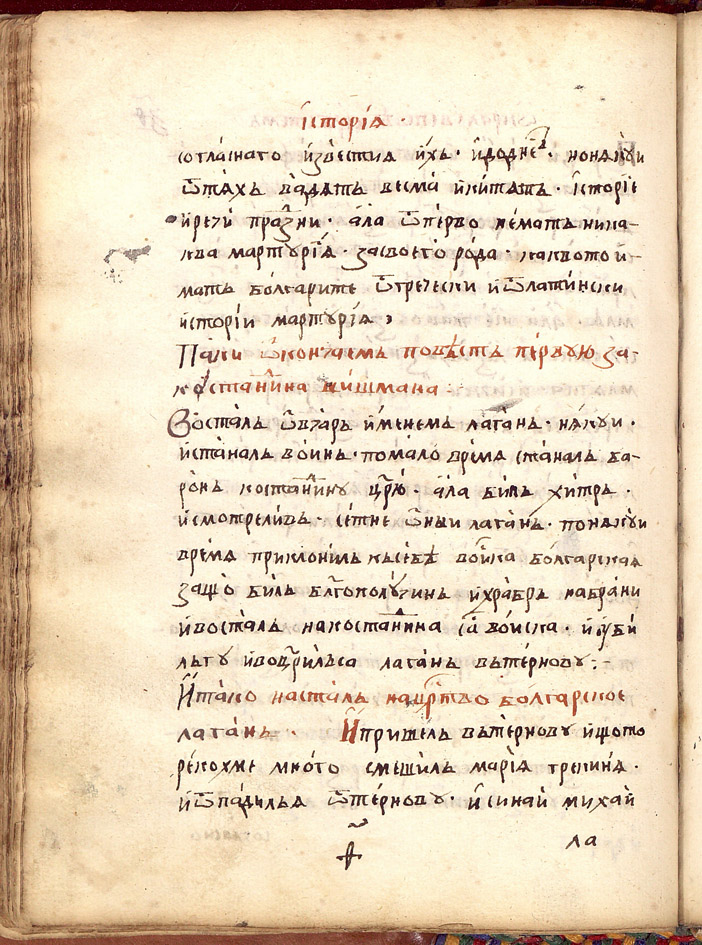 історїа ·
согласнаго извѣстия ихъ · и до дне҇ · но някои
ѿ тяхъ вадятъ весма и китятъ · історїе
и речи празни · ала ѿперво немать ника-
ква мартурїя · за своего рода · каквото и-
мать болгарите ѿ гречески и ѿ латински
истории мартурїя ,
Паки окончаемъ повѣсть первую за-
костантина шишмана :
Восталъ овчаръ именемъ лаганъ · някои ·
и станалъ воинъ · помало время станалъ ба-
ронъ костантину црю · ала билъ хитръ ·
и смотреливъ · сетне оныи лаганъ · по някои
время приклонилъ къ себѣ воиска болгарская
защо билъ блгополучинъ и храбръ на брани
и восталъ на костантина са воиска · и уби
лъ гу и воцрилъ са лаганъ въ терновy :-
И тако насталъ на црство болгарское
лаганъ · И пришелъ въ терновy и щото
рекохме много смешилъ марїя трекиня ·
и ѿпадилъ я ѿ терновy · и синаи михаи
ла